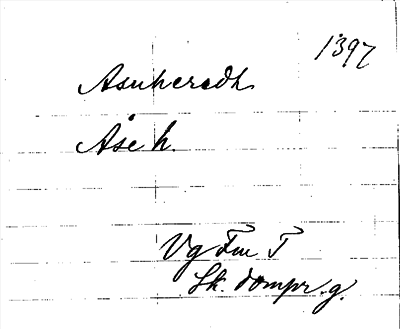 1397
Asuheredh
Åse h.
Vg Fm T
Sk. dompr. g.